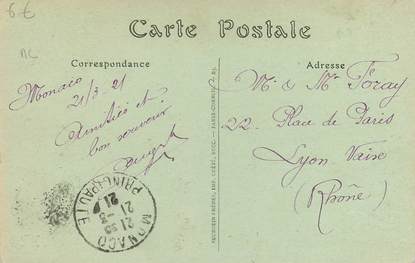 6 €
Carte Postale
Correspondance
Adresse
Monaco
21/3-21
Amitiés et
bon souvenir
Mr & Mme Foray
22. Place de Paris
Lyon Vaise
(Rhône)
MONACO
21-3
21
PRINCIPAUTÉ